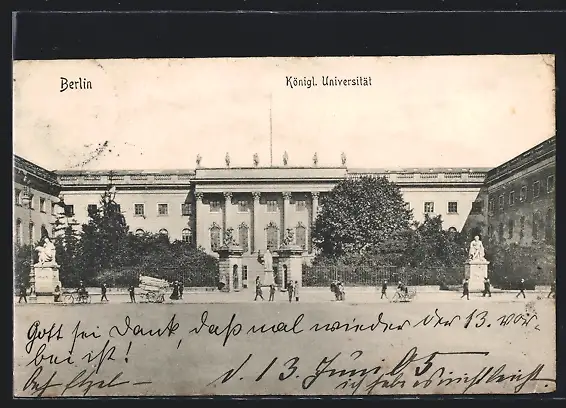 Berlin
Königl. Universität
Gott sei Dank, daß mal wieder der 13. vor-
bei ist!
d. 13. Juni 05
ich